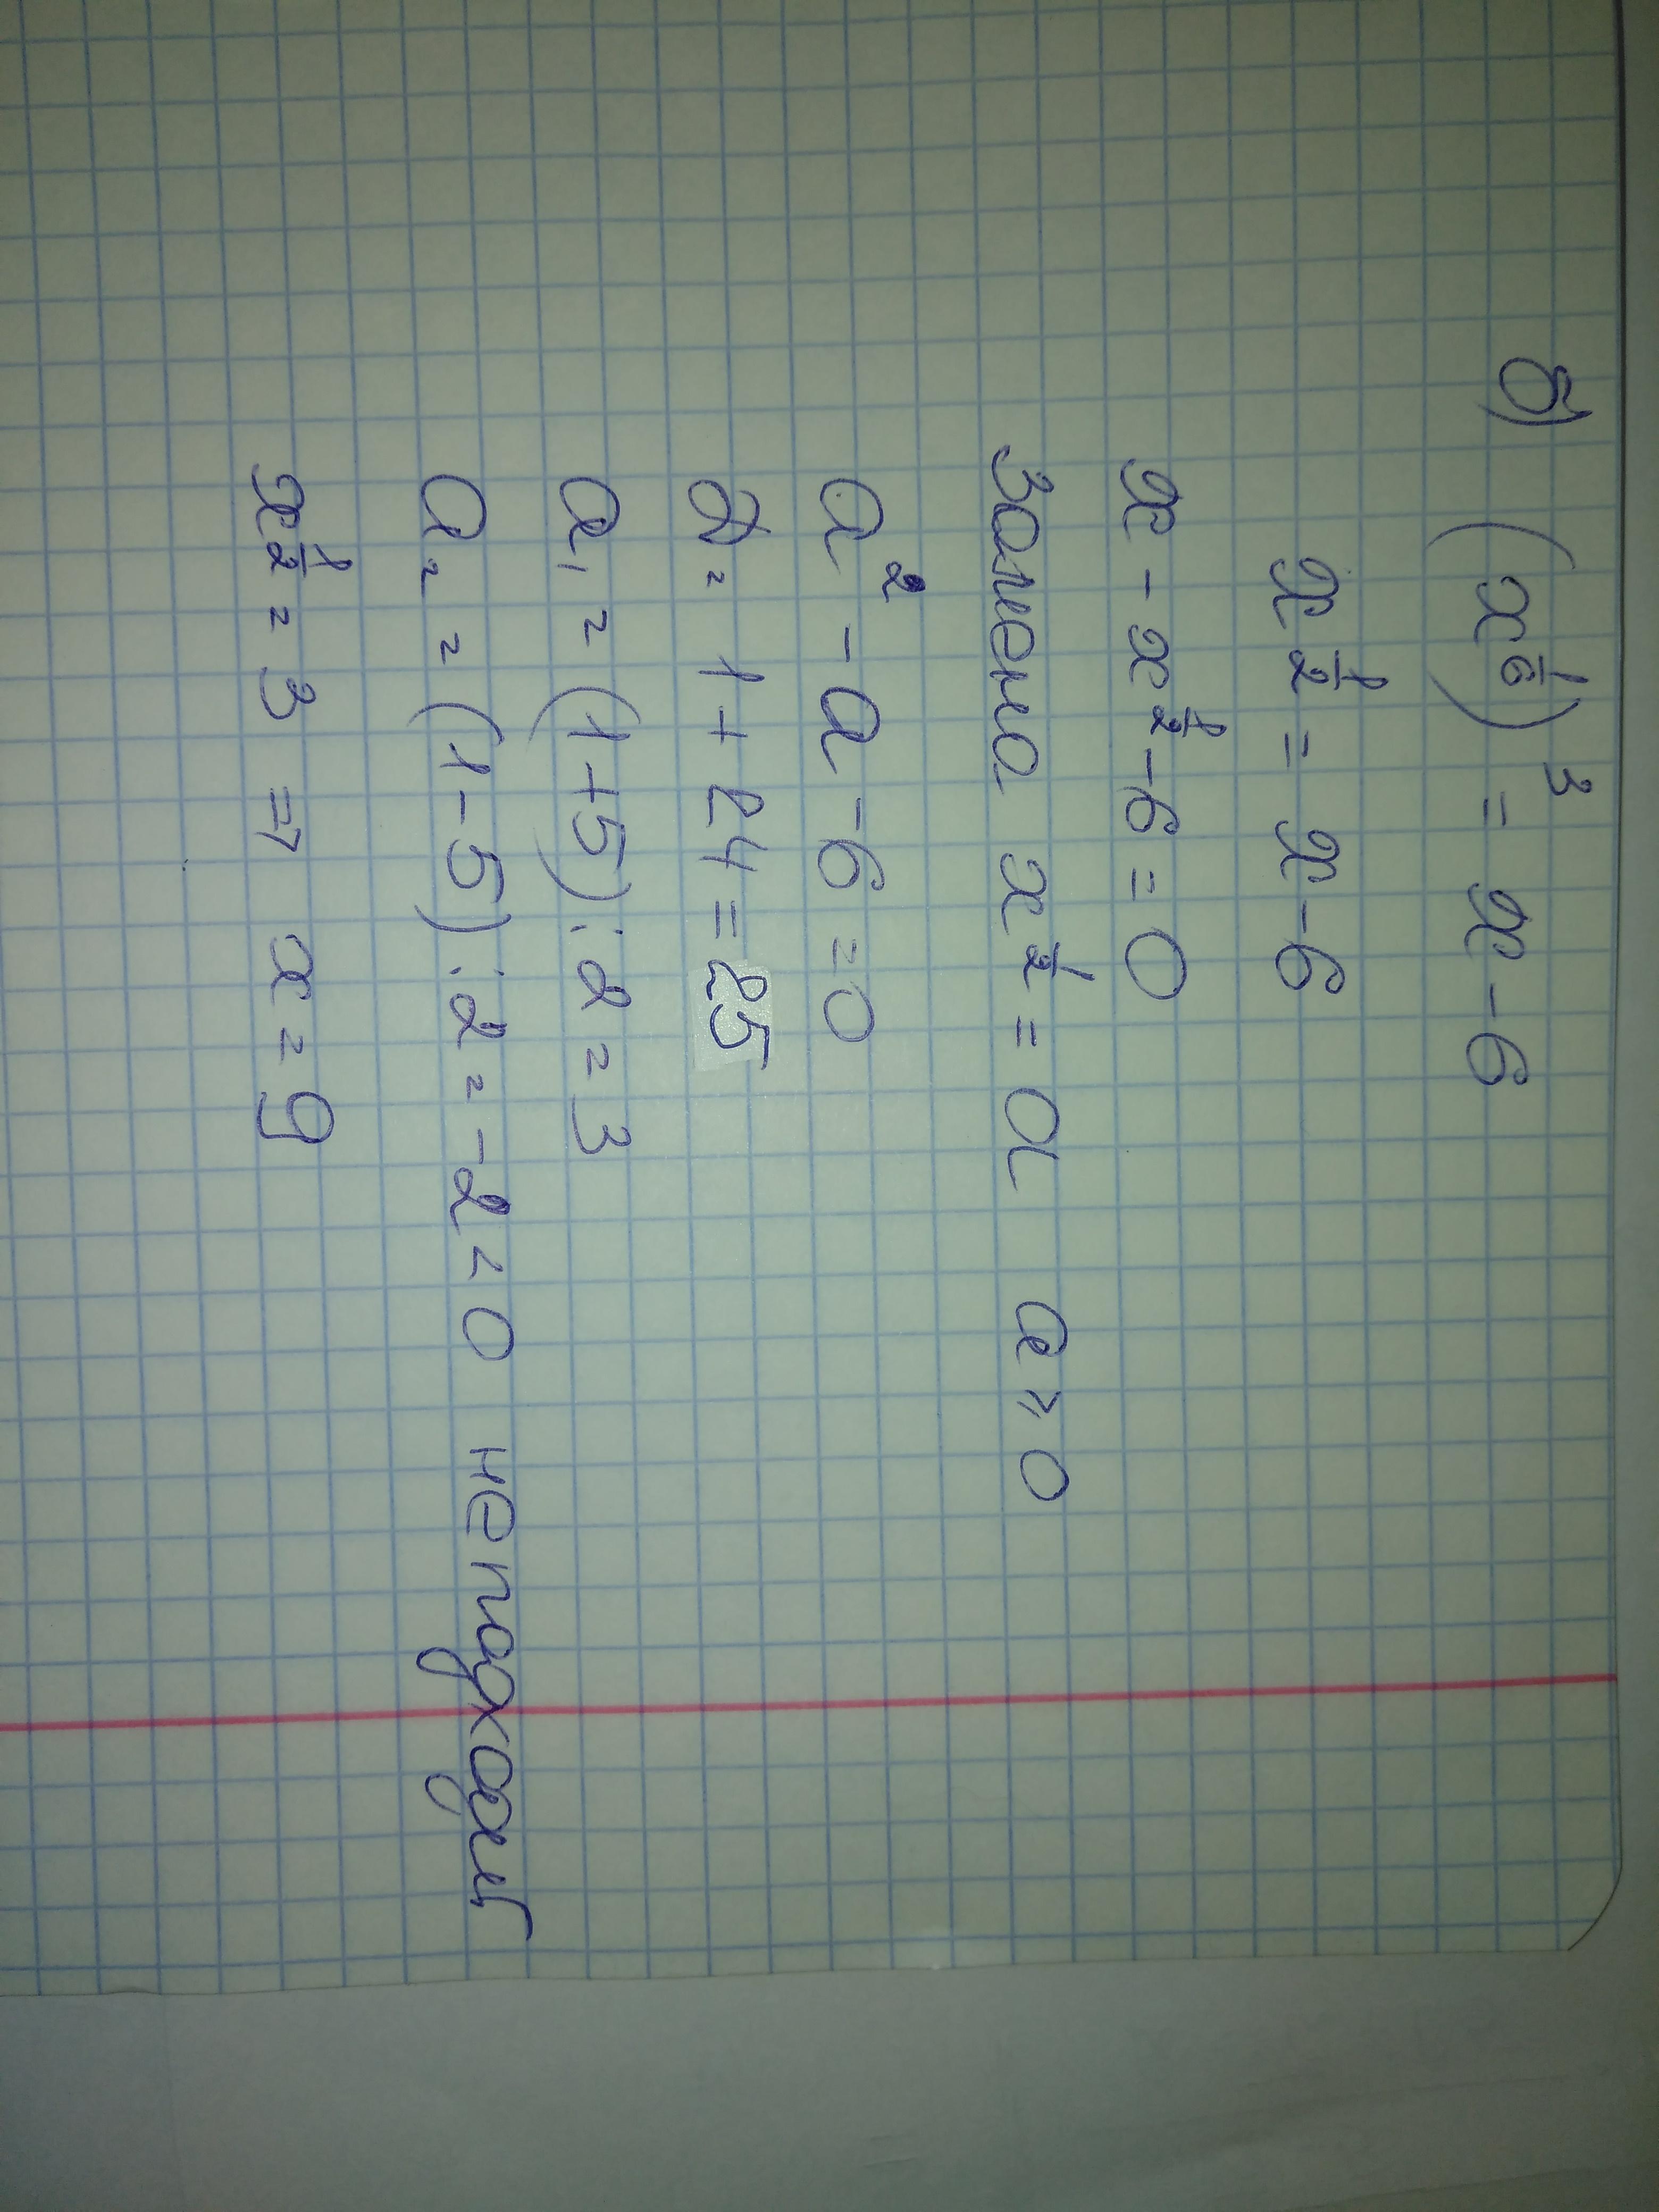 б) (x^(1/6))^3 = x - 6
x^(1/2) = x - 6
x - x^(1/2) - 6 = 0
Замена x^(1/2) = a a ⩾ 0
a^2 - a - 6 = 0
D = 1 + 24 = 25
a₁ = (1+5):2 = 3
a₂ = (1-5):2 = -2 < 0 не подходит
x^(1/2) = 3 => x = 9